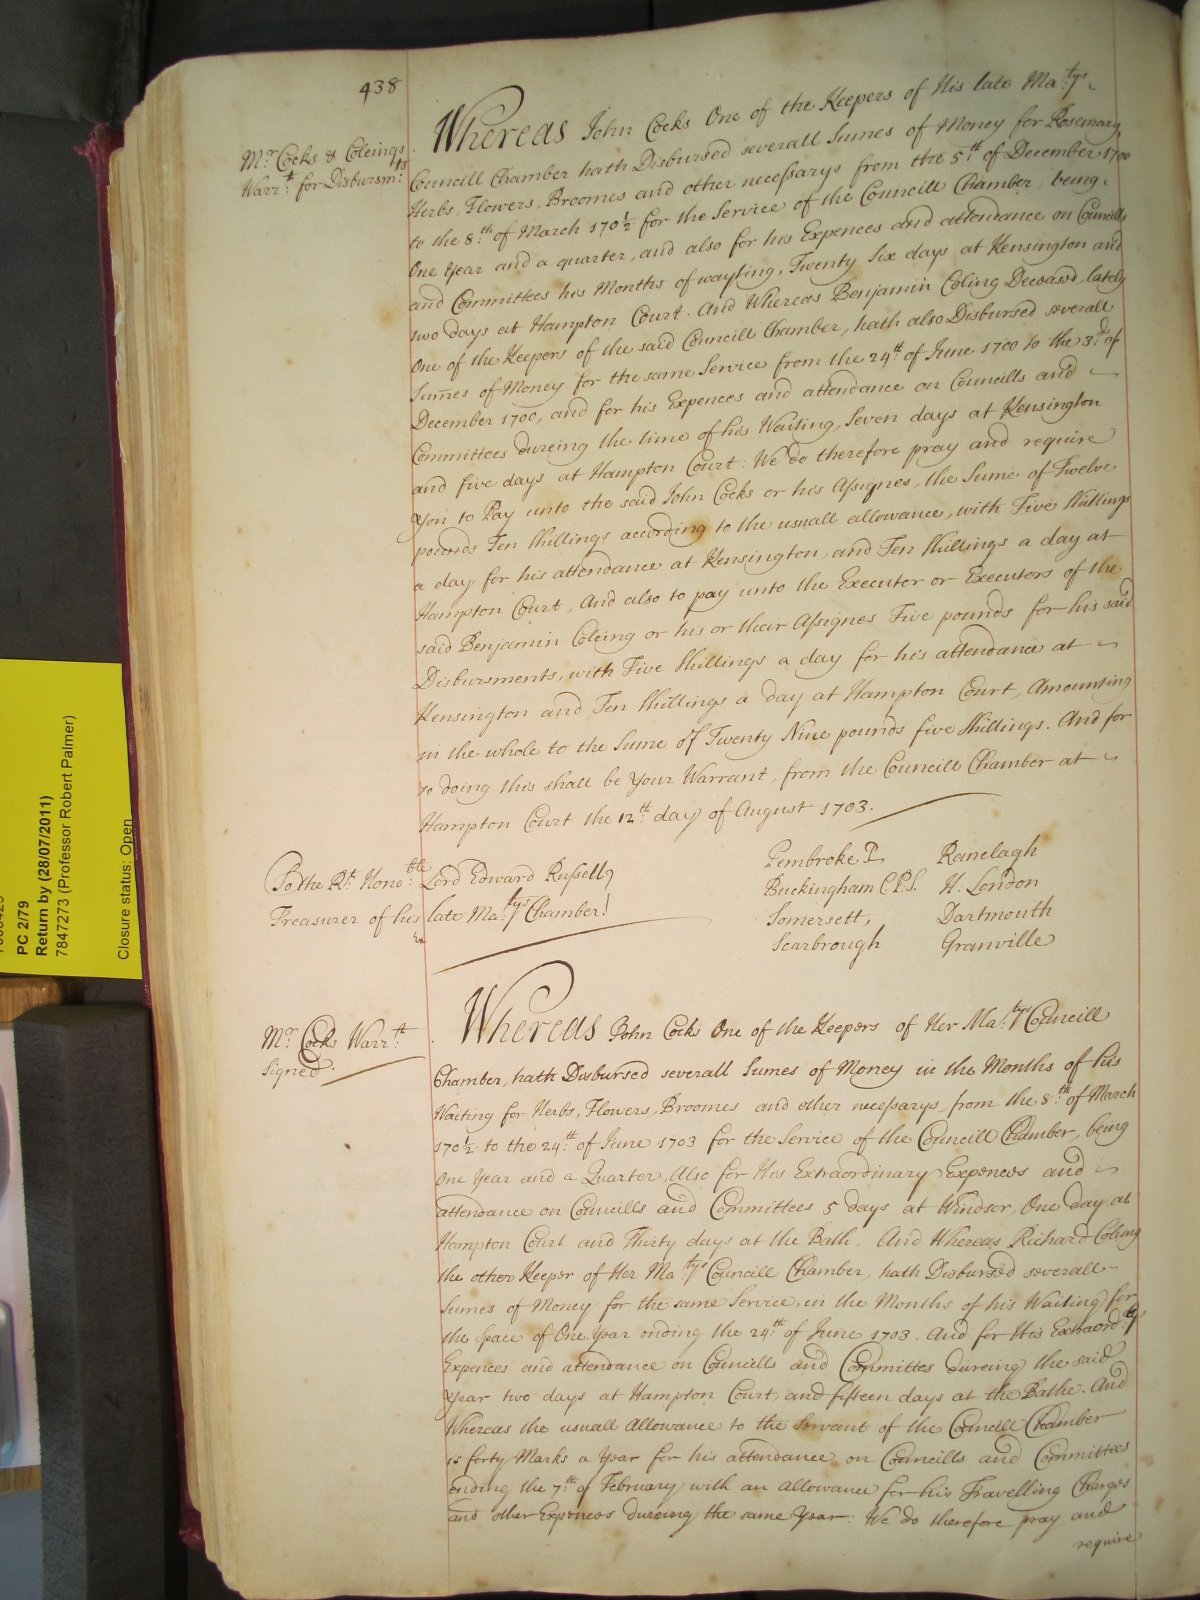 438
Whereas John Cocks One of the Keepers of His late Ma:tys
Mr Cocks & Coleings
Warr:t for Disbursm:ts
Councill Chamber hath Disbursed severall Sumes of Money for Rosemary,
Herbs, Flowers, Broomes and other necessarys from the 5:th of December 1700
to the 8:th of March 170½ for the Service of the Councill Chamber, being,
One Year and a quarter, and also for his Expences and attendance on Councills
and Committees his Months of wayting, Twenty Six days at Kensington and
two days at Hampton Court. And Whereas Benjamin Coling Deceasd, lately
One of the Keepers of the said Councill Chamber, hath also Disbursed severall
Sumes of Money for the same Service from the 24:th of June 1700 to the 3:d of
December 1700, and for his Expences and attendance on Councills and
Committees dureing the time of his Waiting, Seven days at Kensington
and five days at Hampton Court: We do therefore pray and require
You to Pay unto the said John Cocks or his Assignes, the Sume of Twelve
pounds Ten Shillings according to the usuall allowance, with Five Shillings
a day for his attendance at Kensington, and Ten Shillings a day at
Hampton Court, And also to pay unto the Executor or Executors of the
said Benjamin Coleing or his or their Assignes Five pounds for his said
Disbursments, with Five Shillings a day for his attendance at
Kensington and Ten Shillings a day at Hampton Court, Amounting
in the whole to the Sume of Twenty Nine pounds five Shillings. And for
so doing this shall be Your Warrant, from the Councill Chamber at
Hampton Court the 12:th day of August 1703.
To the Rt Hono:ble Lord Edward Russell,
Treasurer of his late Ma:tys Chamber
Pembroke P. Ranelagh
Buckingham C.P.S. H: London
Somersett, Dartmouth
Scarbrough Granville
Whereas John Cocks One of the Keepers of Her Ma:tys Councill
Mr Cocks Warr:tt
Signed.
Chamber, hath Disbursed severall Sumes of Money in the Months of his
Waiting for Herbs, Flowers, Broomes and other necessarys, from the 8:th of March
170½ to the 24:th of June 1703 for the Service of the Councill Chamber, being
One Year and a Quarter, Also for His Extraordinary Expences and
attendance on Councills and Committees 5 days at Windsor, One day at
Hampton Court and Thirty days at the Bath. And Whereas Richard Coleing
the other Keeper of Her Ma:tys Councill Chamber, hath Disbursed severall
Sumes of Money for the same Service, in the Months of his Waiting for
the space of One Year ending the 24:th of June 1703. And for His Extraord:ry
Expences and attendance on Councills and Committes dureing the said
Year two days at Hampton Court, and fifteen days at the Bathe. And
Whereas the usuall Allowance to the Servant of the Councill Chamber
is forty Marks a Year for his attendance on Councills and Committees
ending the 7:th of February with an allowance for his Travelling Charges
and other Expences dureing the same Year: We do therefore pray and
require
PC 2/79
Return by (28/07/2011)
7847273 (Professor Robert Palmer)
Closure status: Open